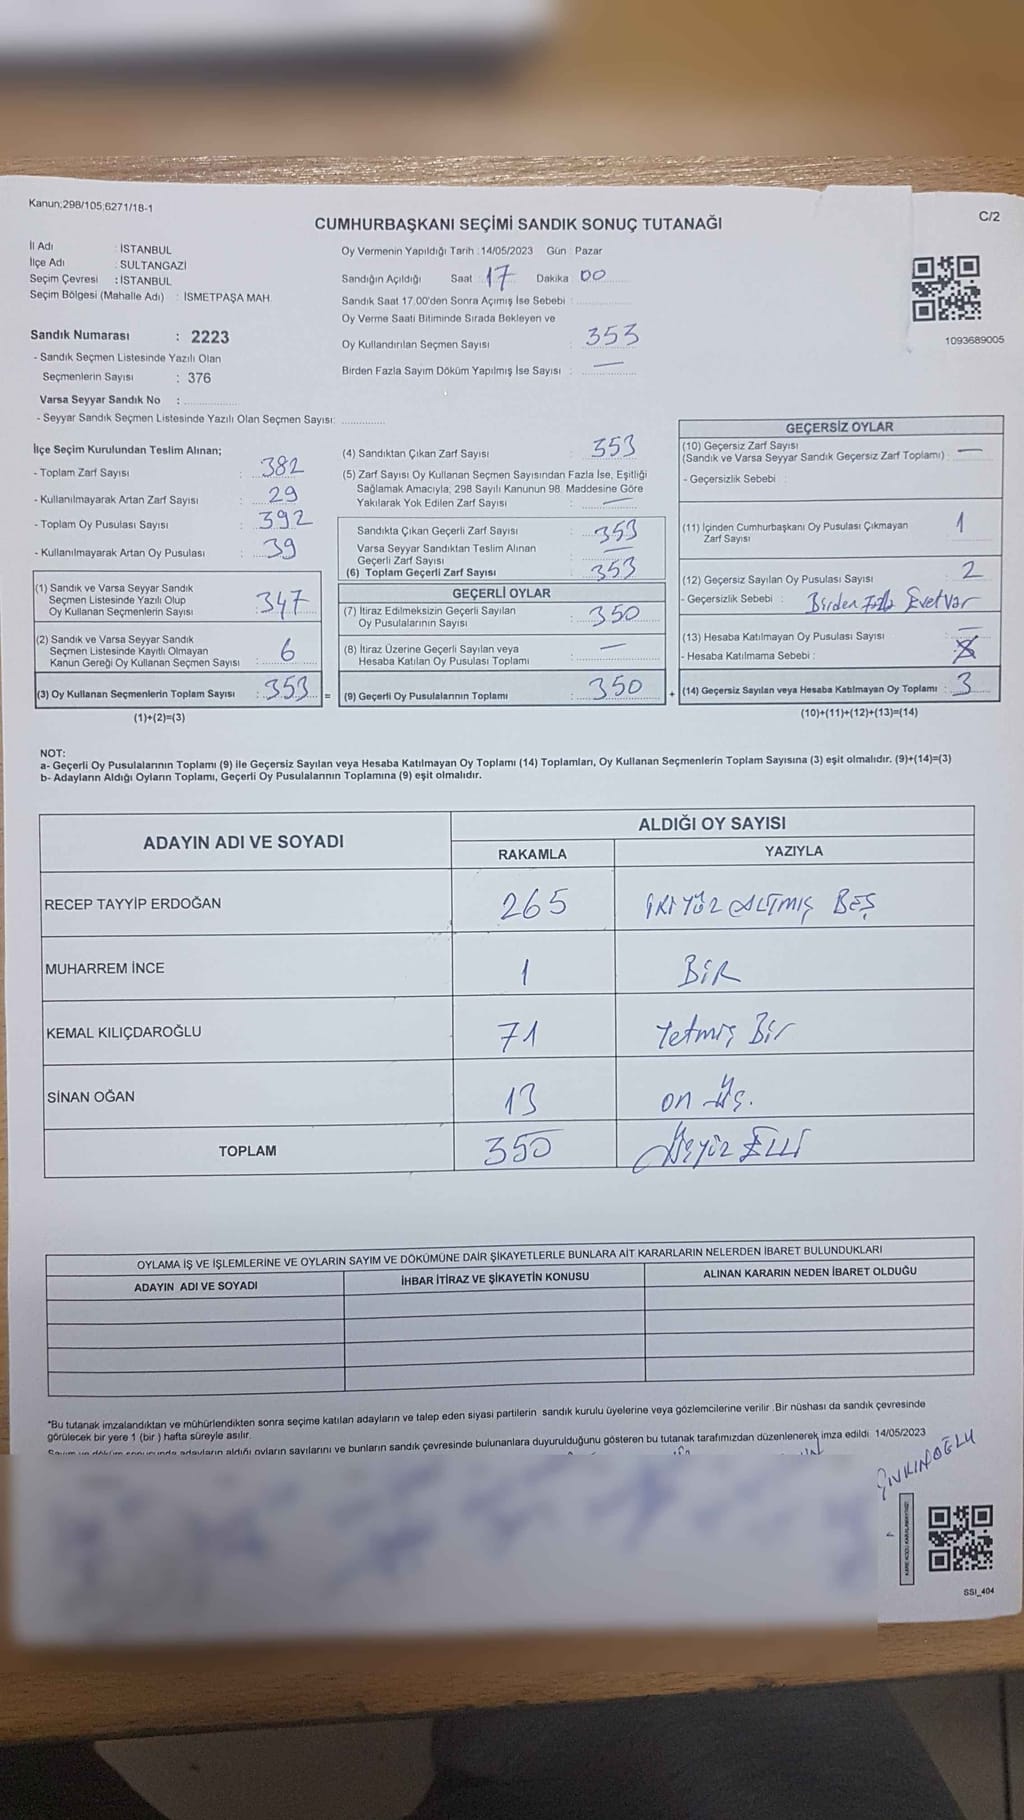 Kanun;298/105,6271/18-1
C/2
CUMHURBAŞKANI SEÇİMİ SANDIK SONUÇ TUTANAĞI
İl Adı : İSTANBUL
İlçe Adı : SULTANGAZİ
Seçim Çevresi : İSTANBUL
Seçim Bölgesi (Mahalle Adı) : İSMETPAŞA MAH.
Oy Vermenin Yapıldığı Tarih : 14/05/2023 Gün : Pazar
Sandığın Açıldığı Saat : 17 Dakika : 00
Sandık Saat 17.00'den Sonra Açımış İse Sebebi :
Oy Verme Saati Bitiminde Sırada Bekleyen ve
Oy Kullandırılan Seçmen Sayısı : 353
Birden Fazla Sayım Döküm Yapılmış İse Sayısı : —
1093689005
Sandık Numarası : 2223
- Sandık Seçmen Listesinde Yazılı Olan
Seçmenlerin Sayısı : 376
Varsa Seyyar Sandık No :
- Seyyar Sandık Seçmen Listesinde Yazılı Olan Seçmen Sayısı:
İlçe Seçim Kurulundan Teslim Alınan;
- Toplam Zarf Sayısı : 382
- Kullanılmayarak Artan Zarf Sayısı : 29
- Toplam Oy Pusulası Sayısı : 392
- Kullanılmayarak Artan Oy Pusulası : 39
(1) Sandık ve Varsa Seyyar Sandık
Seçmen Listesinde Yazılı Olup
Oy Kullanan Seçmenlerin Sayısı : 347
(2) Sandık ve Varsa Seyyar Sandık
Seçmen Listesinde Kayıtlı Olmayan
Kanun Gereği Oy Kullanan Seçmen Sayısı : 6
(3) Oy Kullanan Seçmenlerin Toplam Sayısı : 353 =
(1)+(2)=(3)
(4) Sandıktan Çıkan Zarf Sayısı : 353
(5) Zarf Sayısı Oy Kullanan Seçmen Sayısından Fazla İse, Eşitliği
Sağlamak Amacıyla, 298 Sayılı Kanunun 98. Maddesine Göre
Yakılarak Yok Edilen Zarf Sayısı : —
Sandıkta Çıkan Geçerli Zarf Sayısı : 353
Varsa Seyyar Sandıktan Teslim Alınan
Geçerli Zarf Sayısı : —
(6) Toplam Geçerli Zarf Sayısı : 353
GEÇERLİ OYLAR
(7) İtiraz Edilmeksizin Geçerli Sayılan
Oy Pusulalarının Sayısı : 350
(8) İtiraz Üzerine Geçerli Sayılan veya
Hesaba Katılan Oy Pusulası Toplamı : —
(9) Geçerli Oy Pusulalarının Toplamı : 350 +
GEÇERSİZ OYLAR
(10) Geçersiz Zarf Sayısı
(Sandık ve Varsa Seyyar Sandık Geçersiz Zarf Toplamı) : —
- Geçersizlik Sebebi :
(11) İçinden Cumhurbaşkanı Oy Pusulası Çıkmayan
Zarf Sayısı : 1
(12) Geçersiz Sayılan Oy Pusulası Sayısı : 2
- Geçersizlik Sebebi : Birden Fazla Evet Var
(13) Hesaba Katılmayan Oy Pusulası Sayısı : —
- Hesaba Katılmama Sebebi :
(14) Geçersiz Sayılan veya Hesaba Katılmayan Oy Toplamı : 3
(10)+(11)+(12)+(13)=(14)
NOT:
a- Geçerli Oy Pusulalarının Toplamı (9) ile Geçersiz Sayılan veya Hesaba Katılmayan Oy Toplamı (14) Toplamları, Oy Kullanan Seçmenlerin Toplam Sayısına (3) eşit olmalıdır. (9)+(14)=(3)
b- Adayların Aldığı Oyların Toplamı, Geçerli Oy Pusulalarının Toplamına (9) eşit olmalıdır.
ADAYIN ADI VE SOYADI
ALDIĞI OY SAYISI
RAKAMLA YAZIYLA
RECEP TAYYİP ERDOĞAN 265 İKİ YÜZ ALTMIŞ BEŞ
MUHARREM İNCE 1 BİR
KEMAL KILIÇDAROĞLU 71 Yetmiş Bir
SİNAN OĞAN 13 on üç.
TOPLAM 350 Üçyüz ELLİ
OYLAMA İŞ VE İŞLEMLERİNE VE OYLARIN SAYIM VE DÖKÜMÜNE DAİR ŞİKAYETLERLE BUNLARA AİT KARARLARIN NELERDEN İBARET BULUNDUKLARI
ADAYIN ADI VE SOYADI İHBAR İTİRAZ VE ŞİKAYETİN KONUSU ALINAN KARARIN NEDEN İBARET OLDUĞU
*Bu tutanak imzalandıktan ve mühürlendikten sonra seçime katılan adayların ve talep eden siyasi partilerin sandık kurulu üyelerine veya gözlemcilerine verilir .Bir nüshası da sandık çevresinde
görülecek bir yere 1 (bir ) hafta süreyle asılır.
Sayım ve döküm sonucunda adayların aldığı oyların sayılarını ve bunların sandık çevresinde bulunanlara duyurulduğunu gösteren bu tutanak tarafımızdan düzenlenerek imza edildi 14/05/2023
SSI_404